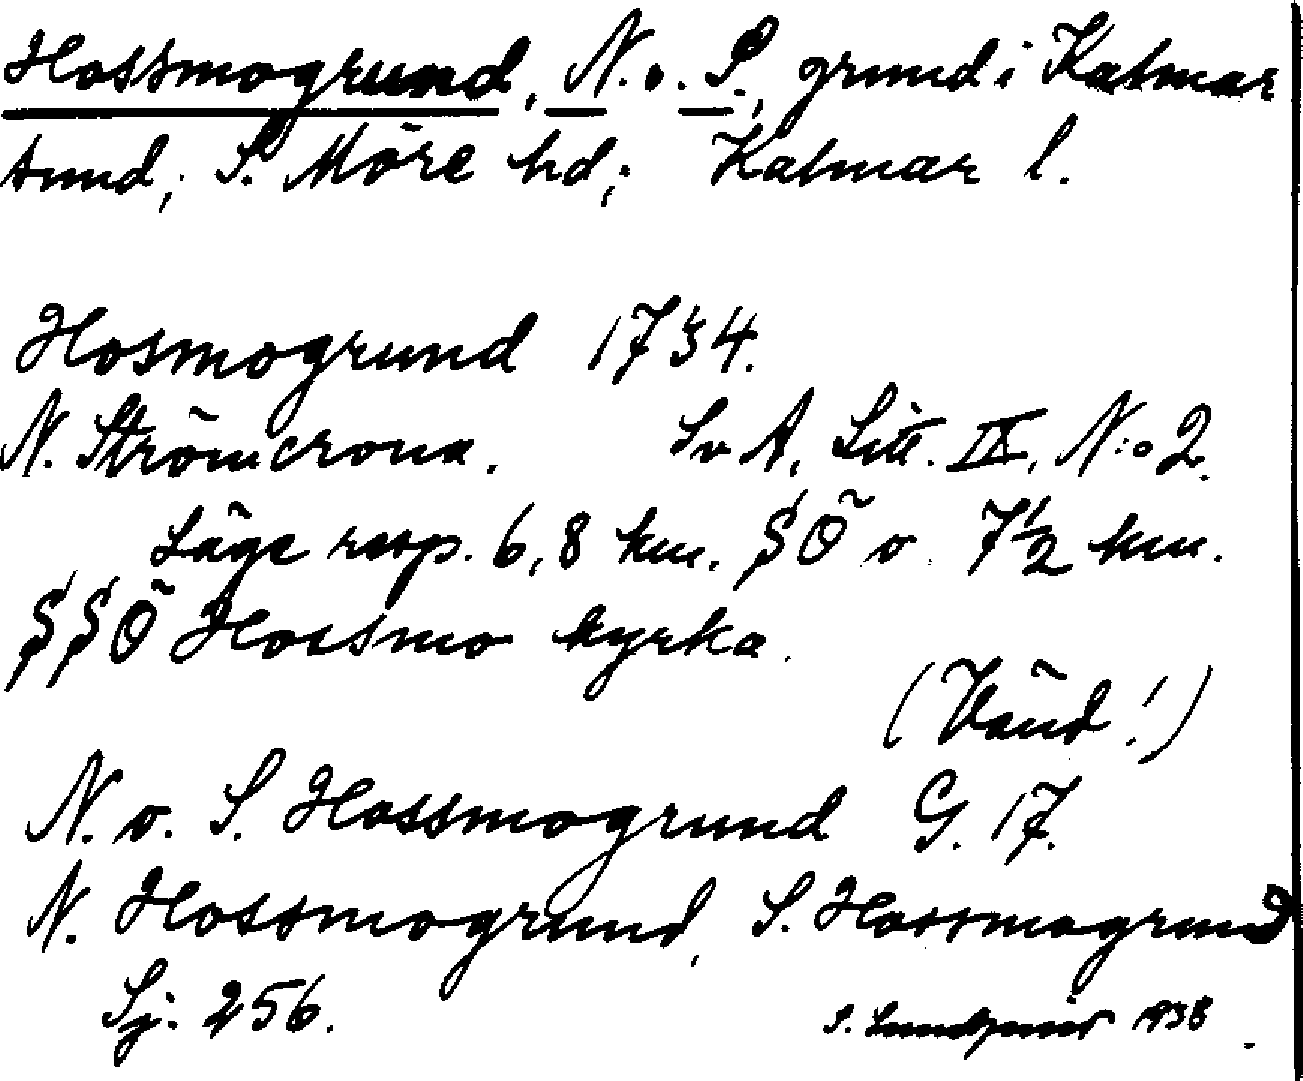 Hossmogrund, N. o. S., grund i Kalmar
sund; S. Möre hd; Kalmar l.
Hosmogrund 1734.
N. Strömcrona. Sv A, Litt. IX, N:o 2.
Läge resp. 6,8 km. SÖ o. 7½ km.
SSÖ Hossmo kyrka.
(Vänd!)
N. o. S. Hossmogrund G. 17.
N. Hossmogrund, S. Hossmogrund
Sj. 256. S. Lundqvist 1938